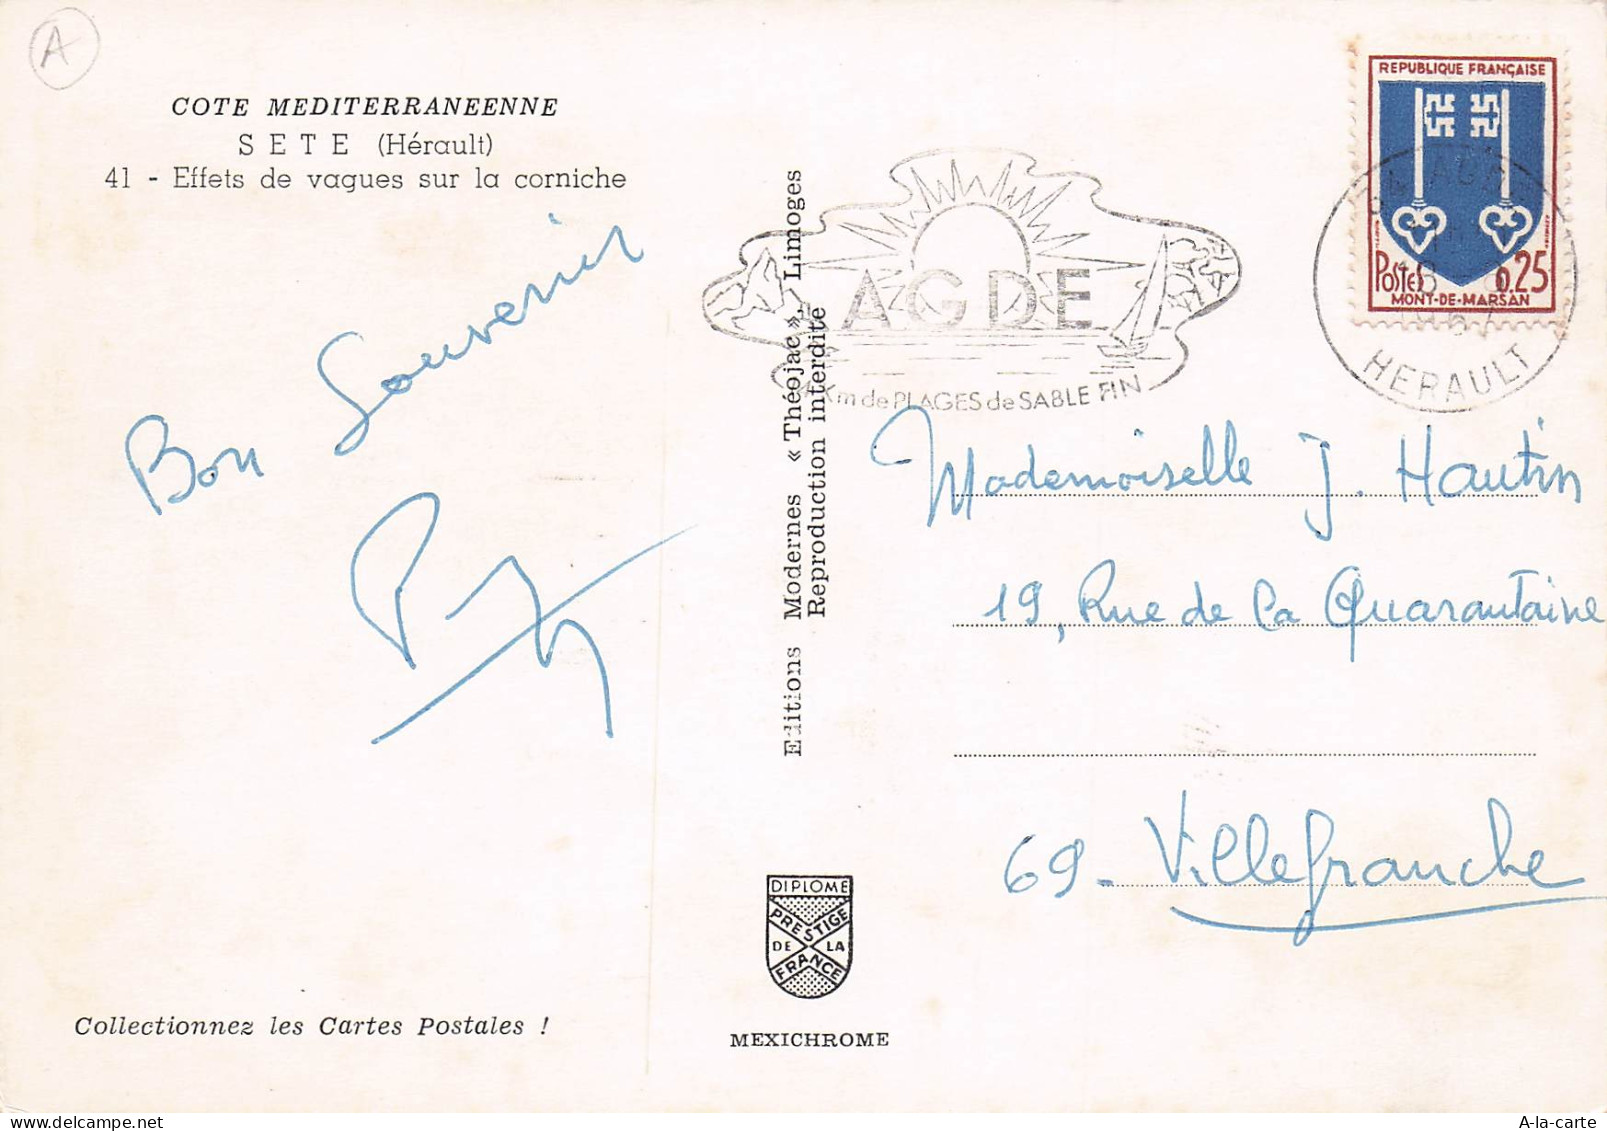 A
COTE MEDITERRANEENNE
SETE (Hérault)
41 - Effets de vagues sur la corniche
Bon Souvenir
Collectionnez les Cartes Postales !
Editions Modernes « Théojac » Limoges
Reproduction interdite
DIPLOME
PRESTIGE
DE LA
FRANCE
MEXICHROME
AGDE
Km de PLAGES de SABLE FIN
REPUBLIQUE FRANÇAISE
POSTES 0,25
MONT-DE-MARSAN
AGDE
18
HERAULT
Mademoiselle J. Hautin
19, Rue de La Quarantaine
69 - Villefranche
A-la-carte